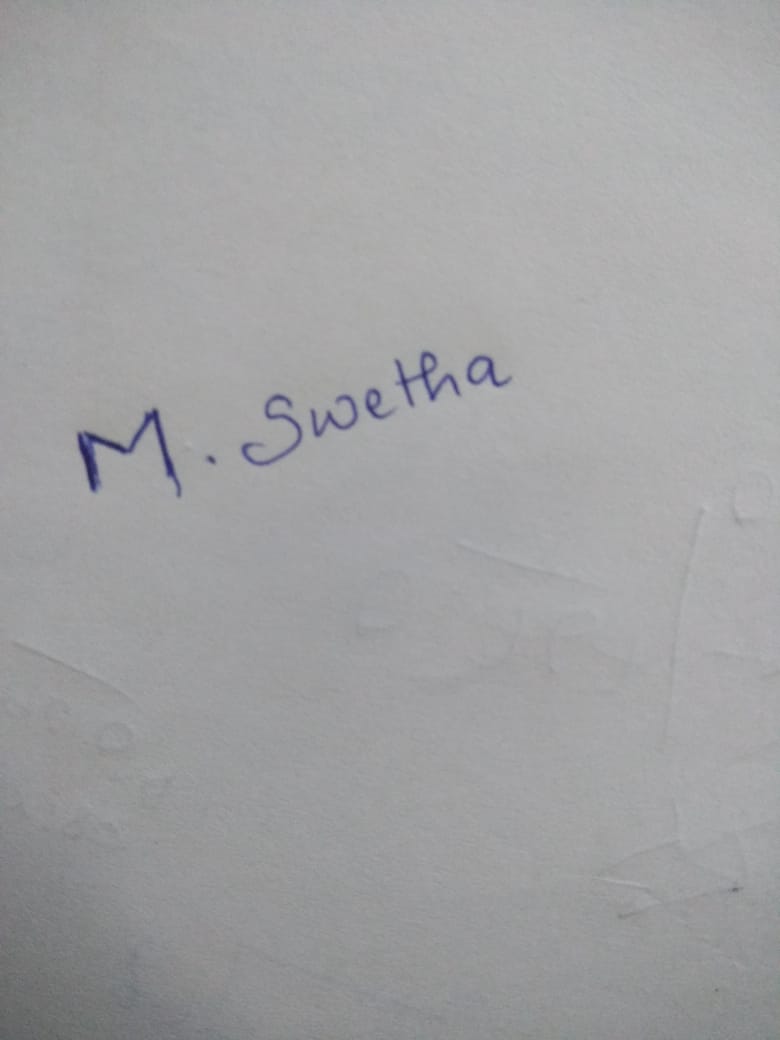 M. Swetha